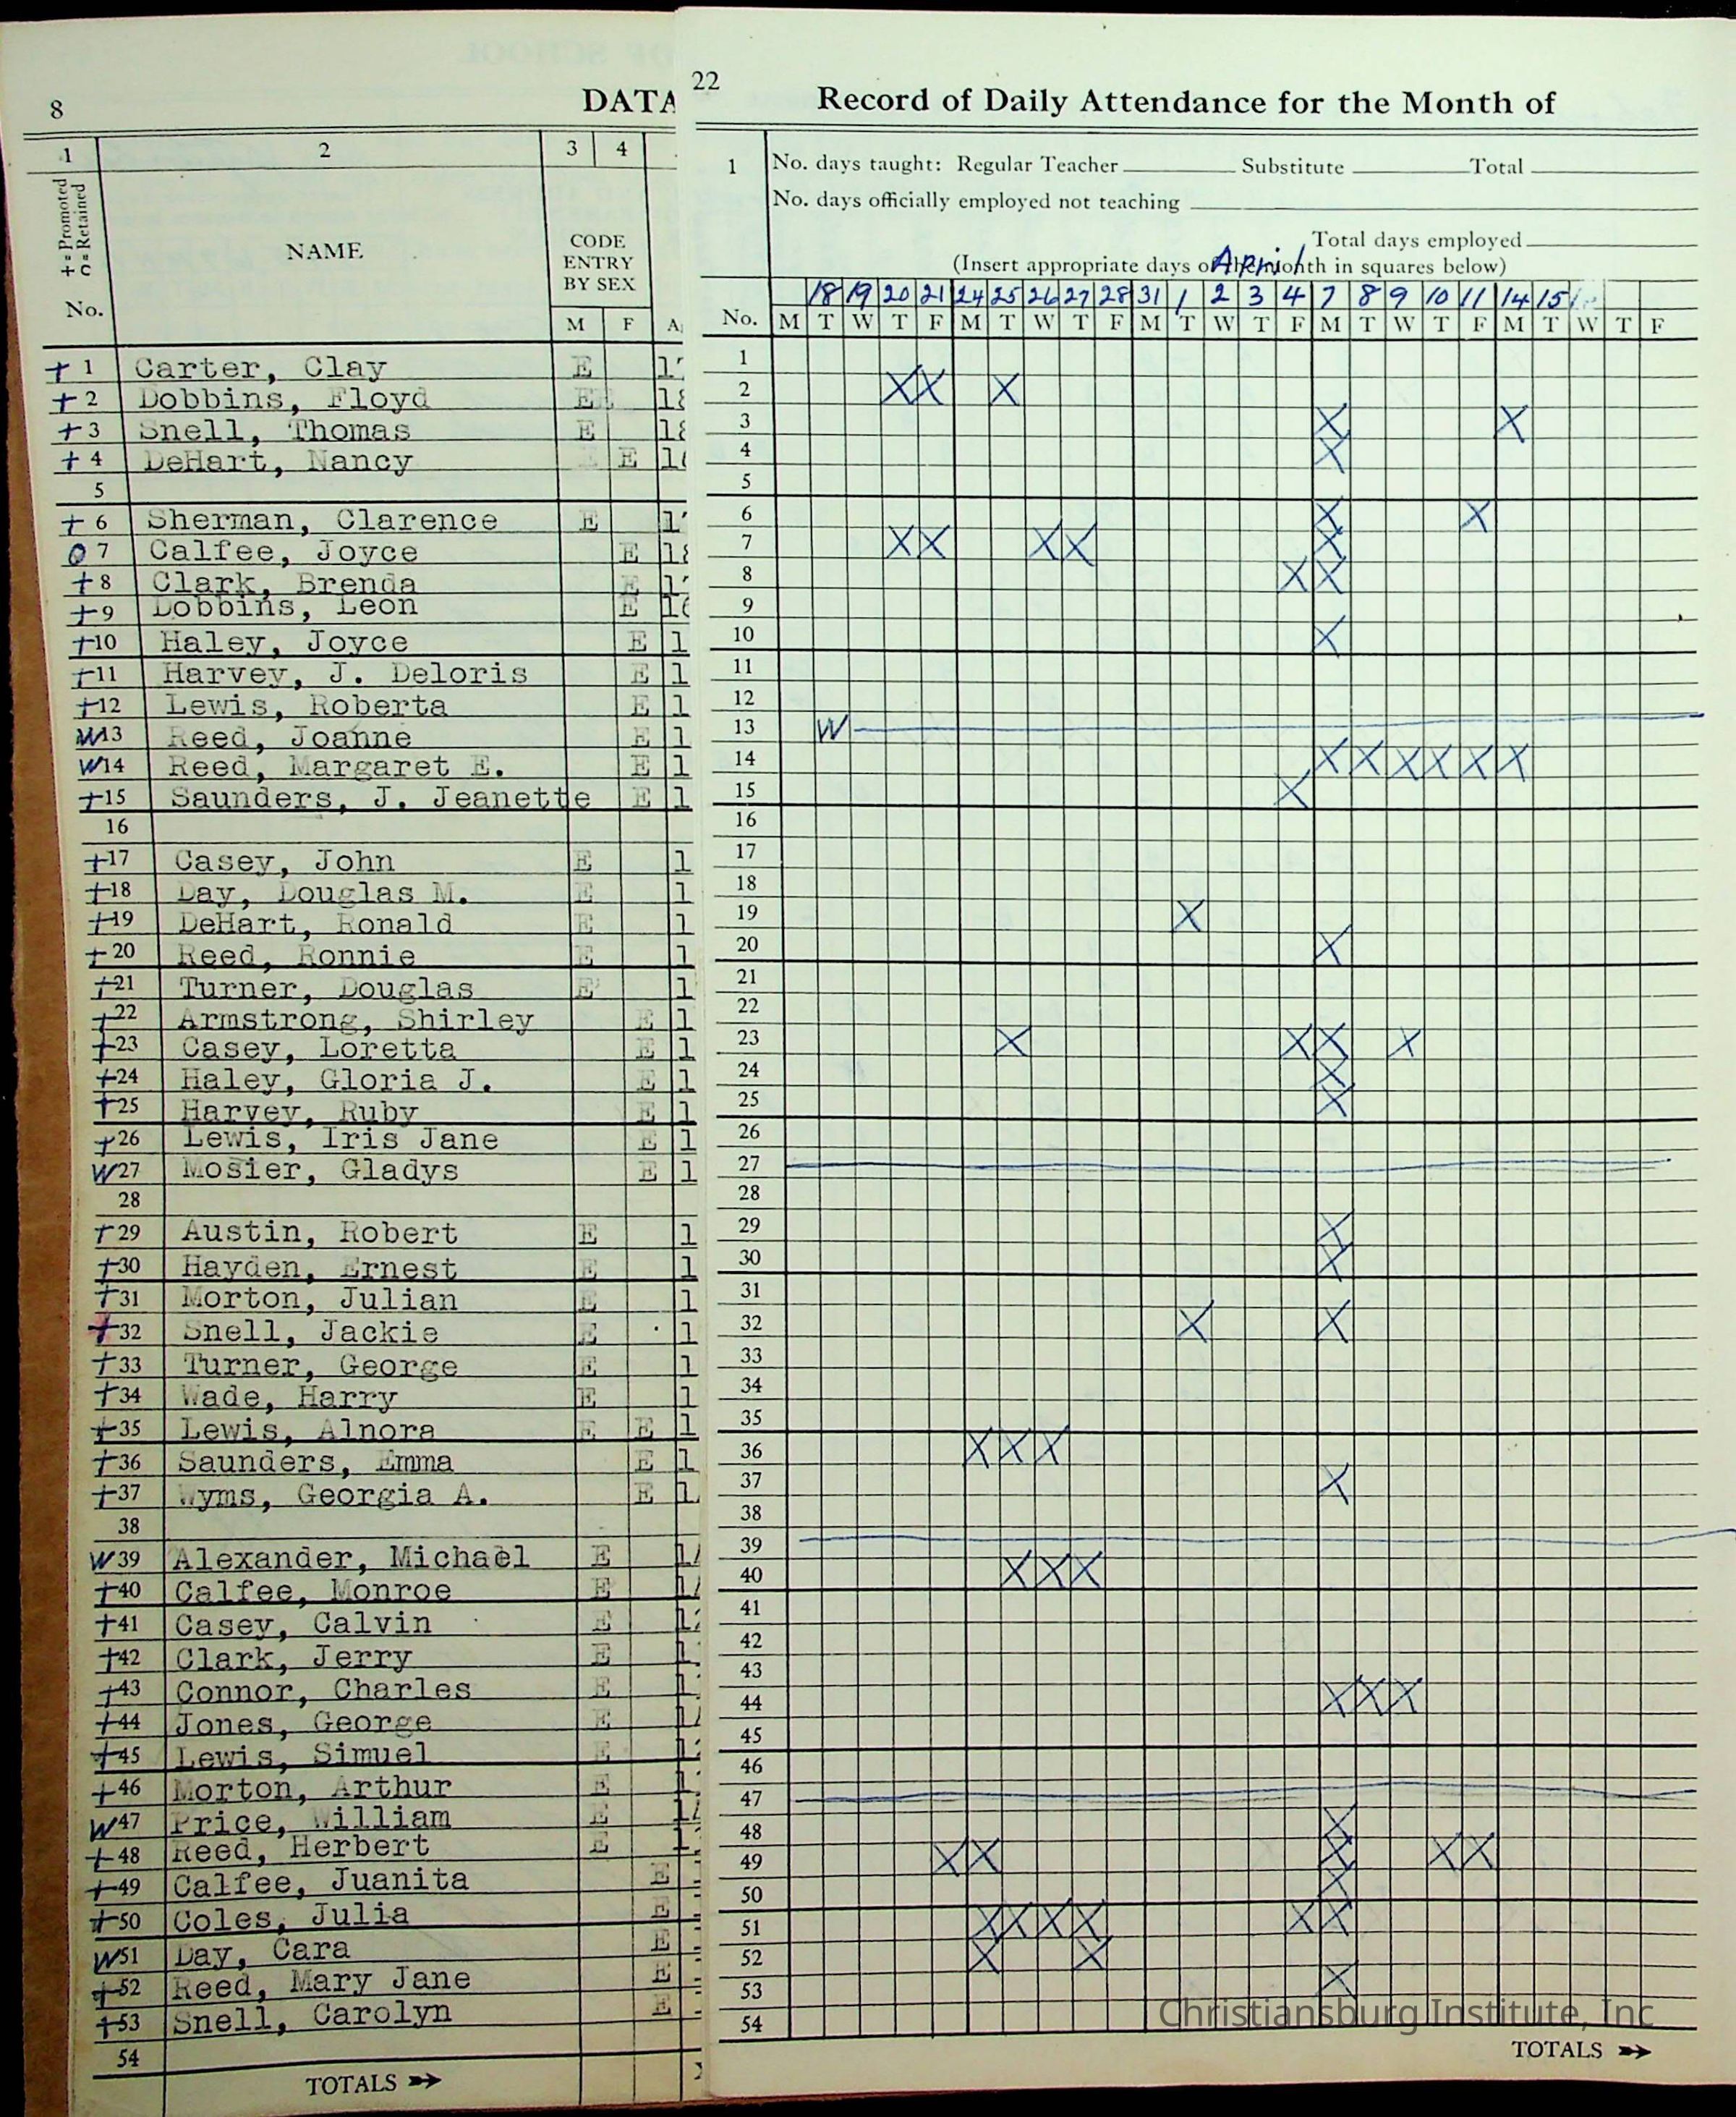 8
DATA
1 2 3 4
+ = Promoted
O = Retained
No.
NAME
CODE
ENTRY
BY SEX
M F
+ 1 Carter, Clay E
+ 2 Dobbins, Floyd E E
+ 3 Snell, Thomas E
+ 4 DeHart, Nancy E
5
+ 6 Sherman, Clarence E
O 7 Calfee, Joyce E
+ 8 Clark, Brenda E
+ 9 Dobbins, Leon E
+ 10 Haley, Joyce E
+ 11 Harvey, J. Deloris E
+ 12 Lewis, Roberta E
W 13 Reed, Joanne E
W 14 Reed, Margaret E. E
+ 15 Saunders, J. Jeanette E
16
+ 17 Casey, John E
+ 18 Day, Douglas M. E
+ 19 DeHart, Ronald E
+ 20 Reed, Ronnie E
+ 21 Turner, Douglas E
+ 22 Armstrong, Shirley E
+ 23 Casey, Loretta E
+ 24 Haley, Gloria J. E
+ 25 Harvey, Ruby E
+ 26 Lewis, Iris Jane E
W 27 Mosier, Gladys E
28
+ 29 Austin, Robert E
+ 30 Hayden, Ernest E
+ 31 Morton, Julian E
+ 32 Snell, Jackie E
+ 33 Turner, George E
+ 34 Wade, Harry E
+ 35 Lewis, Alnora E E
+ 36 Saunders, Emma E
+ 37 Wyms, Georgia A. E
38
W 39 Alexander, Michael E
+ 40 Calfee, Monroe E
+ 41 Casey, Calvin E
+ 42 Clark, Jerry E
+ 43 Connor, Charles E
+ 44 Jones, George E
+ 45 Lewis, Simuel E
+ 46 Morton, Arthur E
W 47 Price, William E
+ 48 Reed, Herbert E
+ 49 Calfee, Juanita E
+ 50 Coles, Julia E
W 51 Day, Cara E
+ 52 Reed, Mary Jane E
+ 53 Snell, Carolyn E
54
TOTALS
22
Record of Daily Attendance for the Month of
1 No. days taught: Regular Teacher Substitute Total
No. days officially employed not teaching
Total days employed
April
(Insert appropriate days of the month in squares below)
18 19 20 21 24 25 26 27 28 31 1 2 3 4 7 8 9 10 11 14 15
No. M T W T F M T W T F M T W T F M T W T F M T W T F
1
2 X X X
3 X X
4 X
5
6 X X
7 X X X X X
8 X X
9
10 X
11
12
13 W
14 X X X X X X
15 X
16
17
18
19 X
20 X
21
22
23 X X X X
24 X
25 X
26
27
28
29 X
30 X
31
32 X X
33
34
35
36 X X X
37 X
38
39
40 X X X
41
42
43
44 X X X
45
46
47
48 X
49 X X X X X
50 X
51 X X X X X X
52 X X
53 X
54
Christiansburg Institute, Inc
TOTALS